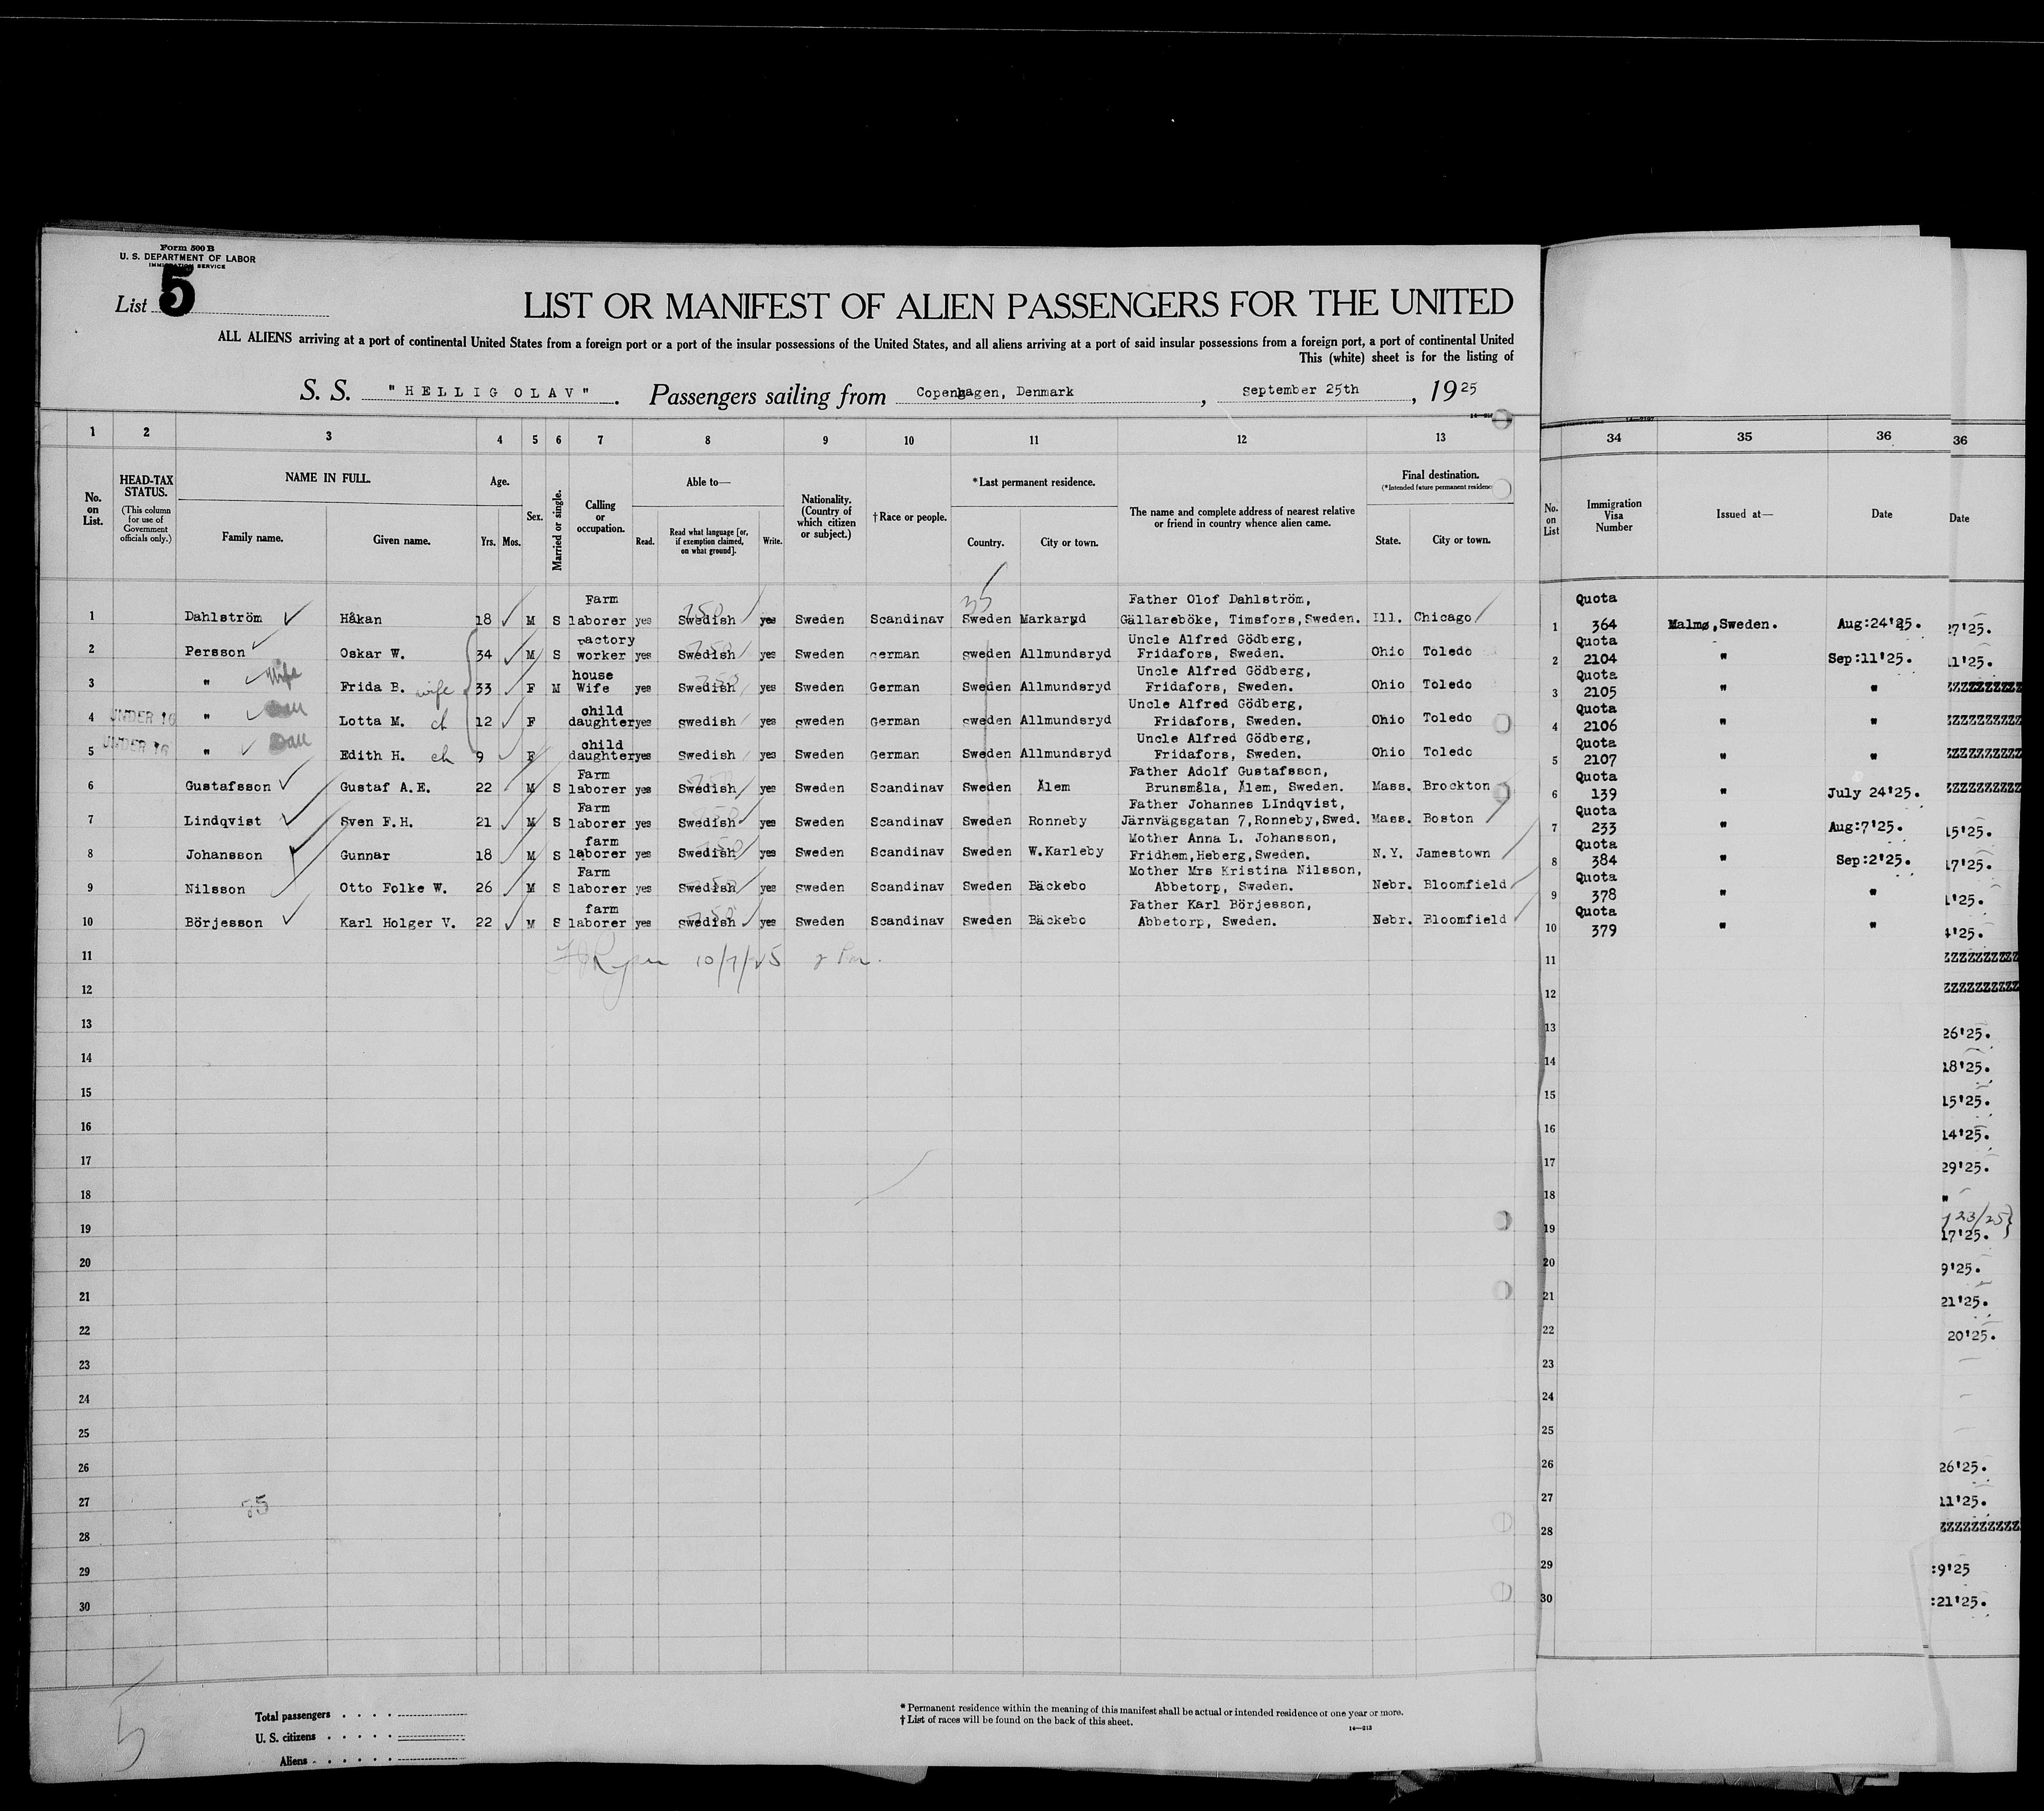 Form 500 B
U. S. DEPARTMENT OF LABOR
IMMIGRATION SERVICE
List 5
LIST OR MANIFEST OF ALIEN PASSENGERS FOR THE UNITED
ALL ALIENS arriving at a port of continental United States from a foreign port or a port of the insular possessions of the United States, and all aliens arriving at a port of said insular possessions from a foreign port, a port of continental United
This (white) sheet is for the listing of
S. S. "HELLIG OLAV". Passengers sailing from Copenhagen, Denmark, September 25th, 1925
1 2 3 4 5 6 7 8 9 10 11 12 13 34 35 36 36
No. on List.
HEAD-TAX STATUS. (This column for use of Government officials only.)
NAME IN FULL.
Family name. Given name.
Age.
Yrs. Mos.
Sex.
Married or single.
Calling or occupation.
Able to—
Read. Read what language [or, if exemption claimed, on what ground]. Write.
Nationality. (Country of which citizen or subject.)
†Race or people.
*Last permanent residence.
Country. City or town.
The name and complete address of nearest relative or friend in country whence alien came.
Final destination.
(*Intended future permanent residence
State. City or town.
No. on List
Immigration Visa Number
Issued at—
Date
Date
35
1 Dahlström Håkan 18 M S Farm laborer yes Swedish yes Sweden Scandinav Sweden Markaryd Father Olof Dahlström, Gällareböke, Timsfors,Sweden. Ill. Chicago 1 Quota 364 Malmø,Sweden. Aug:24'25. 27'25.
2 Persson Oskar W. 34 M S Factory worker yes Swedish yes Sweden German Sweden Allmundsryd Uncle Alfred Gödberg, Fridafors, Sweden. Ohio Toledo 2 Quota 2104 " Sep:11'25. 11'25.
3 " Wife Frida B. wife 33 F M house Wife yes Swedish yes Sweden German Sweden Allmundsryd Uncle Alfred Gödberg, Fridafors, Sweden. Ohio Toledo 3 Quota 2105 " " ZZZZZZZZZZ
4 UNDER 16 " Dau Lotta M. ch 12 F child daughter yes swedish yes Sweden German sweden Allmundsryd Uncle Alfred Gödberg, Fridafors, Sweden. Ohio Toledo 4 Quota 2106 " " ZZZZZZZZZZ
5 UNDER 16 " Dau Edith H. ch 9 F child daughter yes Swedish yes Sweden German Sweden Allmundsryd Uncle Alfred Gödberg, Fridafors, Sweden. Ohio Toledo 5 Quota 2107 " " ZZZZZZZZZZ
6 Gustafsson Gustaf A.E. 22 M S Farm laborer yes Swedish yes Sweden Scandinav Sweden Ålem Father Adolf Gustafsson, Brunsmåla, Ålem, Sweden. Mass. Brockton 6 Quota 139 " July 24'25. ZZZZZZZZZZ
7 Lindqvist Sven F.H. 21 M S Farm laborer yes Swedish yes Sweden Scandinav Sweden Ronneby Father Johannes LIndqvist, Järnvägsgatan 7,Ronneby,Swed. Mass. Boston 7 Quota 233 " Aug:7'25. 15'25.
8 Johansson Gunnar 18 M S farm laborer yes Swedish yes Sweden Scandinav Sweden W.Karleby Mother Anna L. Johansson, Fridhem,Heberg,Sweden. N.Y. Jamestown 8 Quota 384 " Sep:2'25. 17'25.
9 Nilsson Otto Folke W. 26 M S Farm laborer yes Swedish yes sweden Scandinav Sweden Bäckebo Mother Mrs Kristina Nilsson, Abbetorp, Sweden. Nebr. Bloomfield 9 Quota 378 " " 1'25.
10 Börjesson Karl Holger V. 22 M S farm laborer yes swedish yes Sweden Scandinav Sweden Bäckebo Father Karl Börjesson, Abbetorp, Sweden. Nebr. Bloomfield 10 Quota 379 " " 4'25.
11 10/7/25 11 ZZZZZZZZZZ
12 12 ZZZZZZZZZZ
13 13 26'25.
14 14 18'25.
15 15 15'25.
16 16 14'25.
17 17 29'25.
18 18 "
19 19 23/25 17'25.
20 20 9'25.
21 21 21'25.
22 22 20'25.
23 23
24 24
25 25
26 26 26'25.
27 27 11'25.
28 28 ZZZZZZZZZZ
29 29 :9'25
30 30 :21'25.
5
Total passengers
U. S. citizens
Aliens
* Permanent residence within the meaning of this manifest shall be actual or intended residence of one year or more.
† List of races will be found on the back of this sheet.
14—213